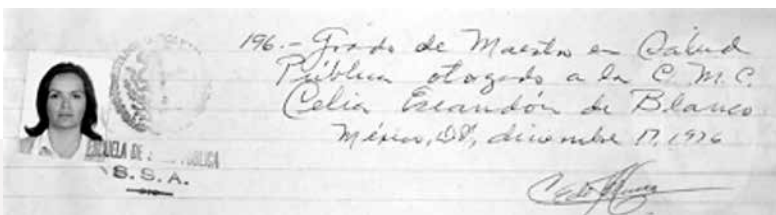 196.- Grado de Maestra en Salud
Pública otorgado a la C. M. C.
Celia Escandón de Blanco
México, D.F., diciembre 17, 1976
ESCUELA DE PUBLICA
S. S. A.